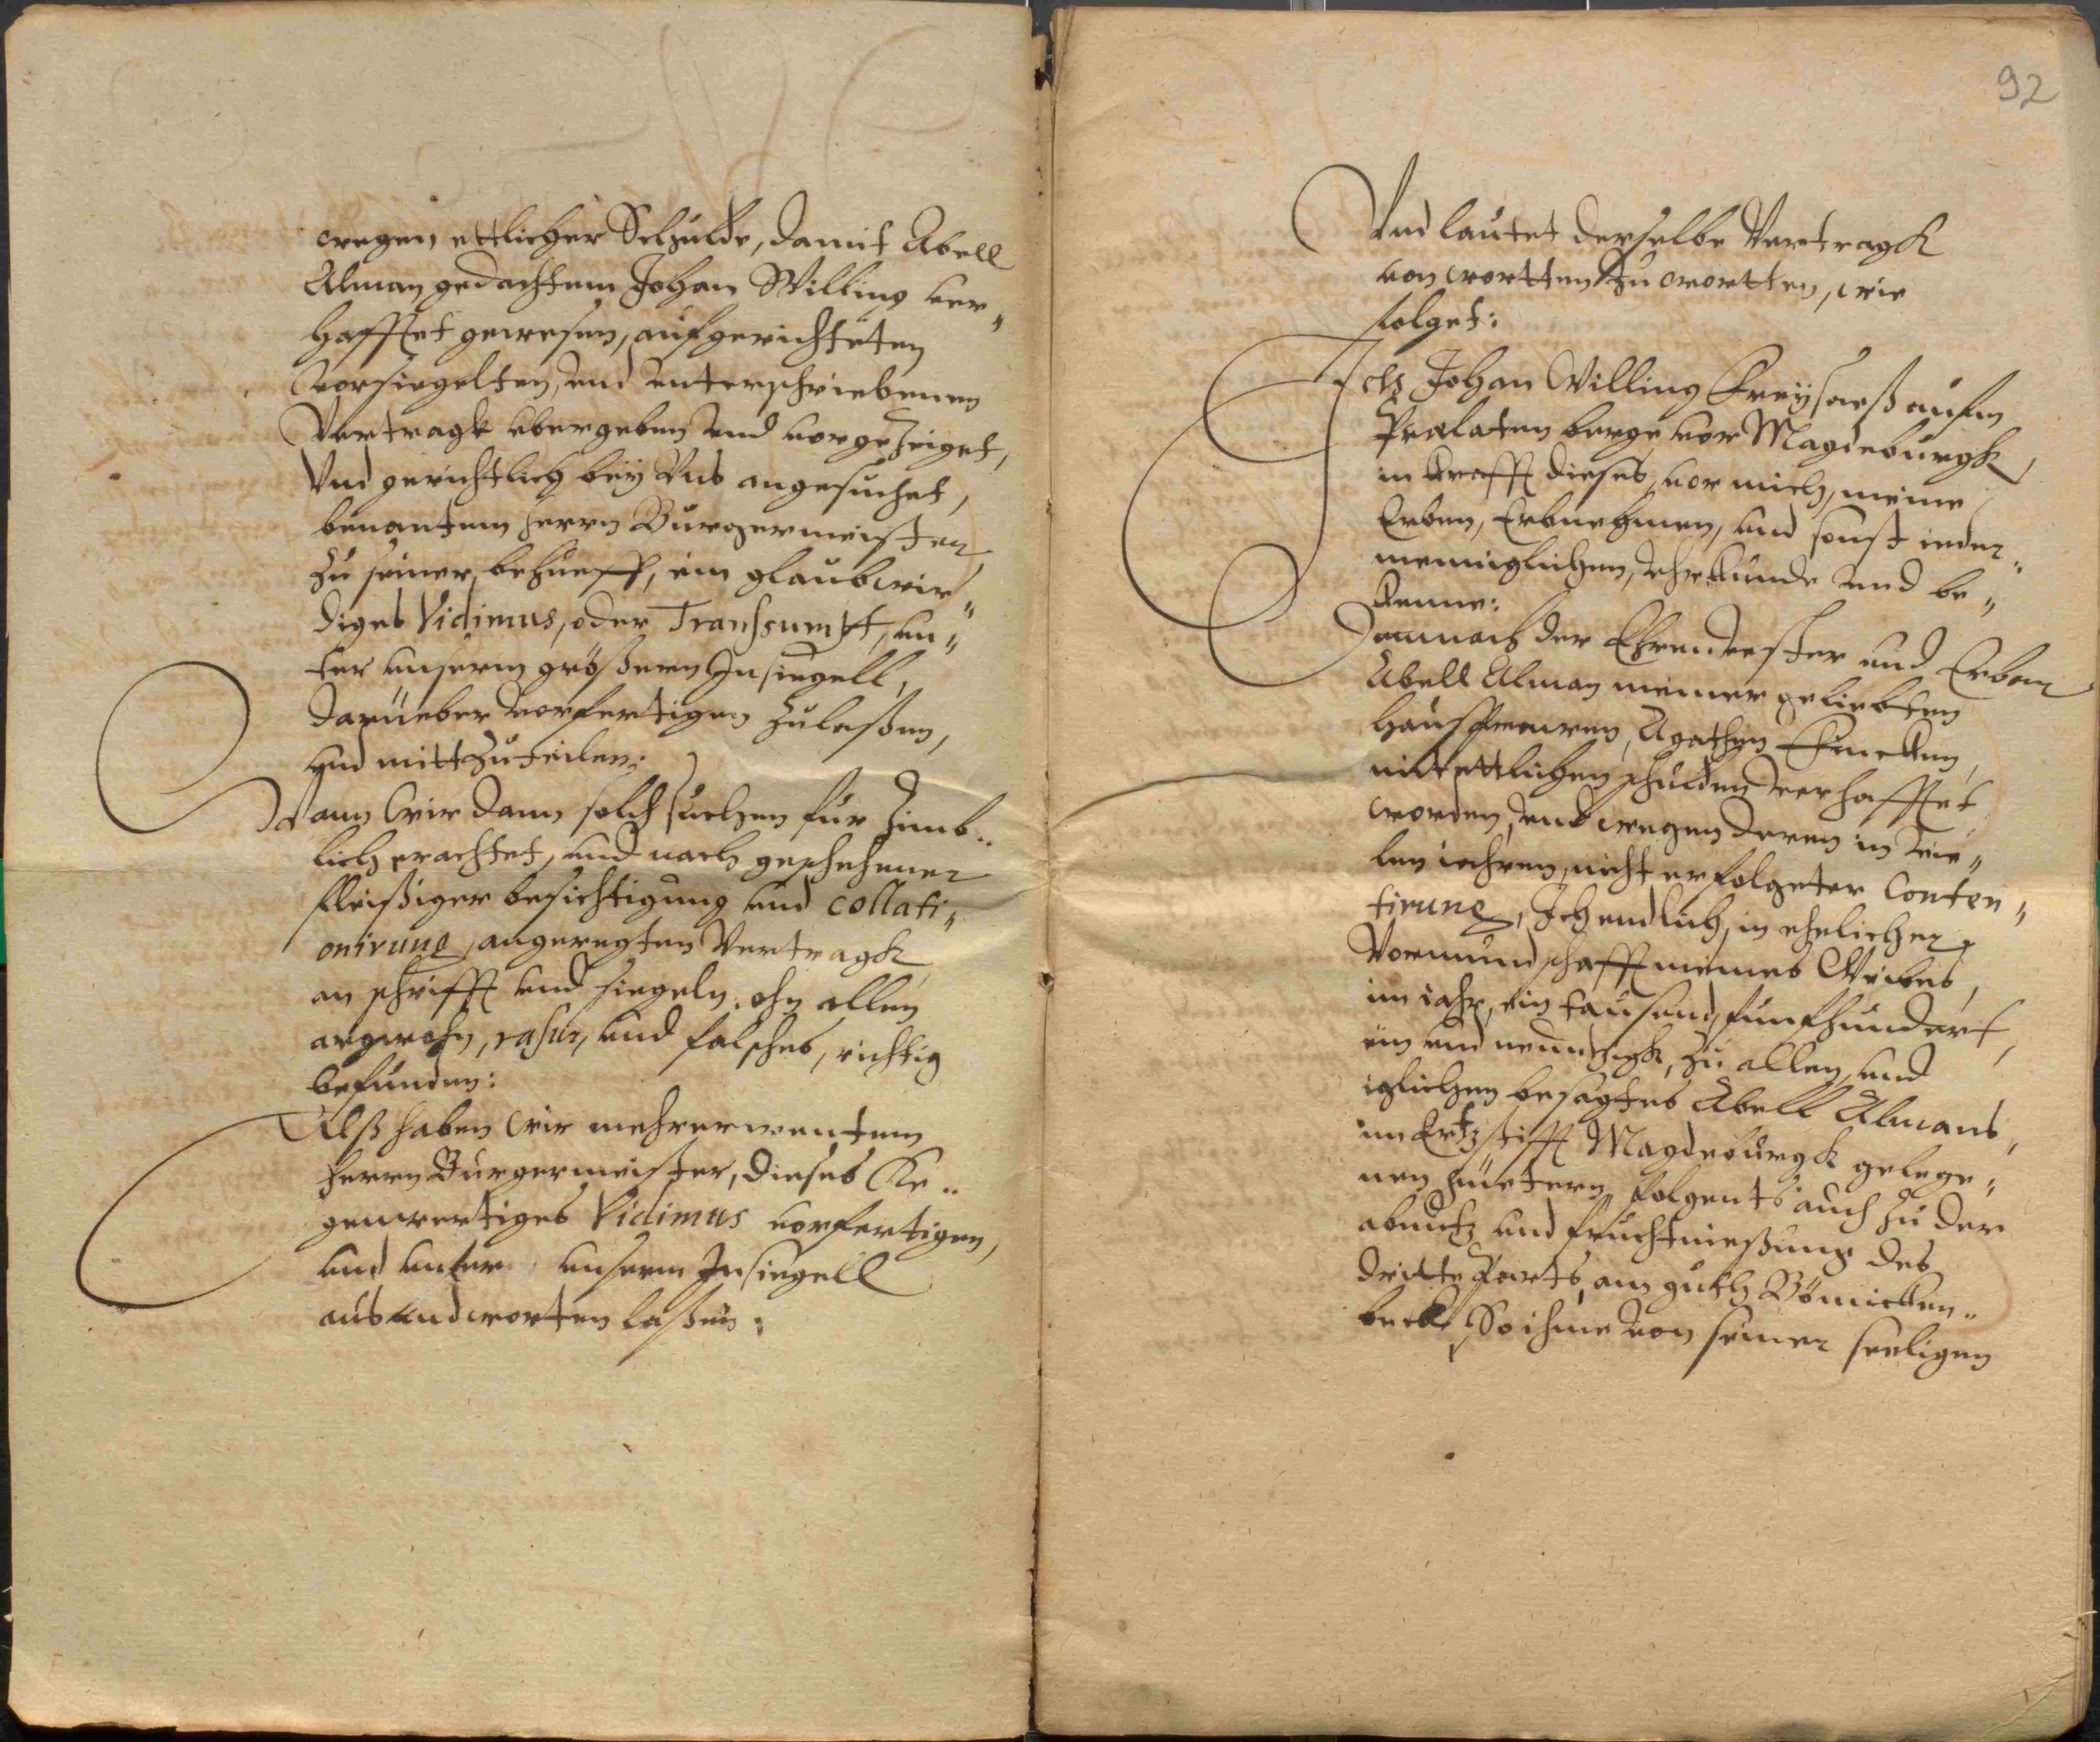 wegen ettlicher Schulde, damit Abell
Alman gedachtem Johan Willing ver„
hafftet gewesen, aufgerichteten
vorsiegelten, und unterschriebenen
Vertragk ubergeben und vorgezeiget,
Und gerichtlich bey Uns angesuchet,
benantem Herrn Burgermeister,
zu seiner behueff, ein glaubwir„
diges Vidimus, oder Transsumpt, un„
ter unserm größern Insiegell,
darueber vorfertigen zulaßen,
und mittzuteilen:
Wann Wir dann solch suchen für zimb„
lich erachtet, und nach geschehener
fleißiger besichtigung und collati„
onirung angeregten Vertragk
an schrifft und siegeln, ohn allen
argwohn, rasur, und falsches, richtig
befunden:
Alß haben Wir mehrerwentem
Herrn Burgermeister, dieses Ke„
genwertiges Vidimus vorfertigen,
und unter unserm Insiegell
ausandworten laßen:
92
Und lautet derselbe Vertragk
von wortten zu wortten, wie
folget:
Ich Johan Willing Freysaeß aufm
Praelaten berge vor Magdeburgk,
in krafft dieses, vor mich, meine
Erben, Erbnehmen, und sonst ieder„
menniglichen, uhrkunde und be„
kenne:
Demnach der Ehrenvester und Erbar
Abell Alman meiner geliebten
Hausfrawen, Agathen
mit ettlichen schulden verhafftet
worden, und wegen deren in vie„
len iahren, nicht erfolgeter Conten„
tirung, Ich endlich, in ehelicher
Vormundschafft meines Weibes,
im iahr, ein tausend, funfhundert,
ein und neuntzigk, zu allen, und
iglichen besagtes Abell Almans,
im Ertzstifft Magdeburgk gelege„
nen guetern, folgents auch zu der
abnutz und fruchtnießung des
dritteparts, am guth Bömicken„
beck, So ihme von seiner seeligen